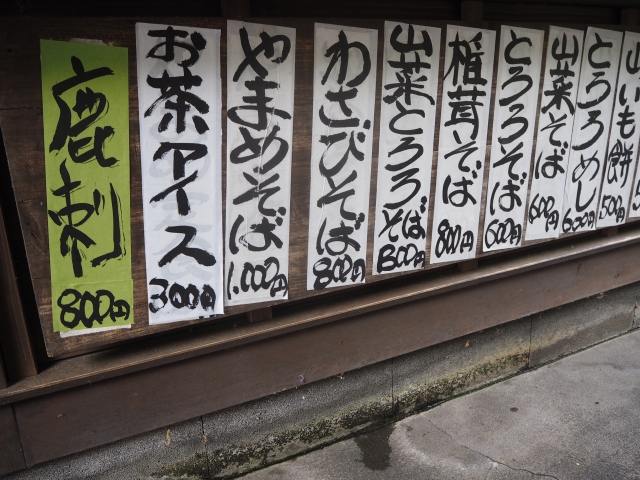 鹿刺
800円
お茶アイス
300円
やまめそば
1,000円
わさびそば
800円
山菜とろろそば
800円
椎茸そば
800円
とろろそば
600円
山菜そば
600円
とろろめし
600円
山いも餅
500円